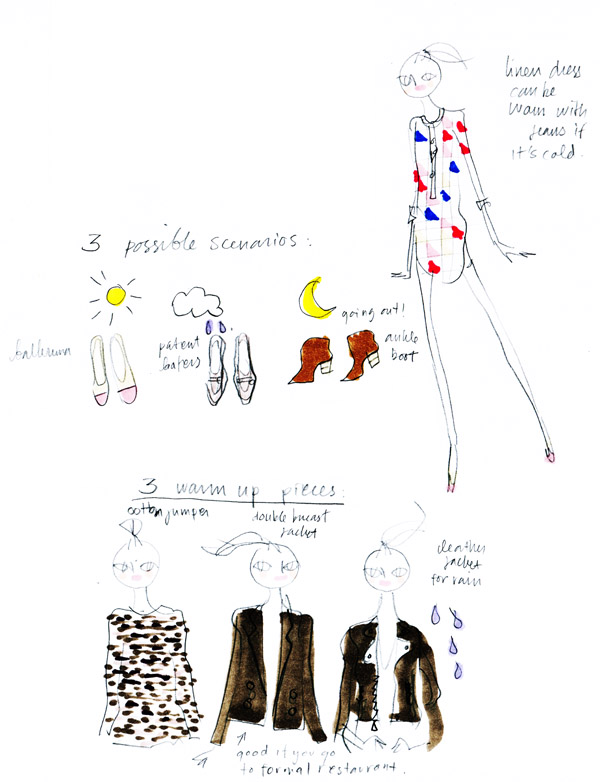 linen dress
can be
warn with
jeans if
it's cold.
3 possible scenarios:
going out!
ballerina
patent
loafers
ankle
boot
3 warm up pieces:
cotton jumper
double breast
jacket
leather
jacket
for rain
good if you go
to formal restaurant.